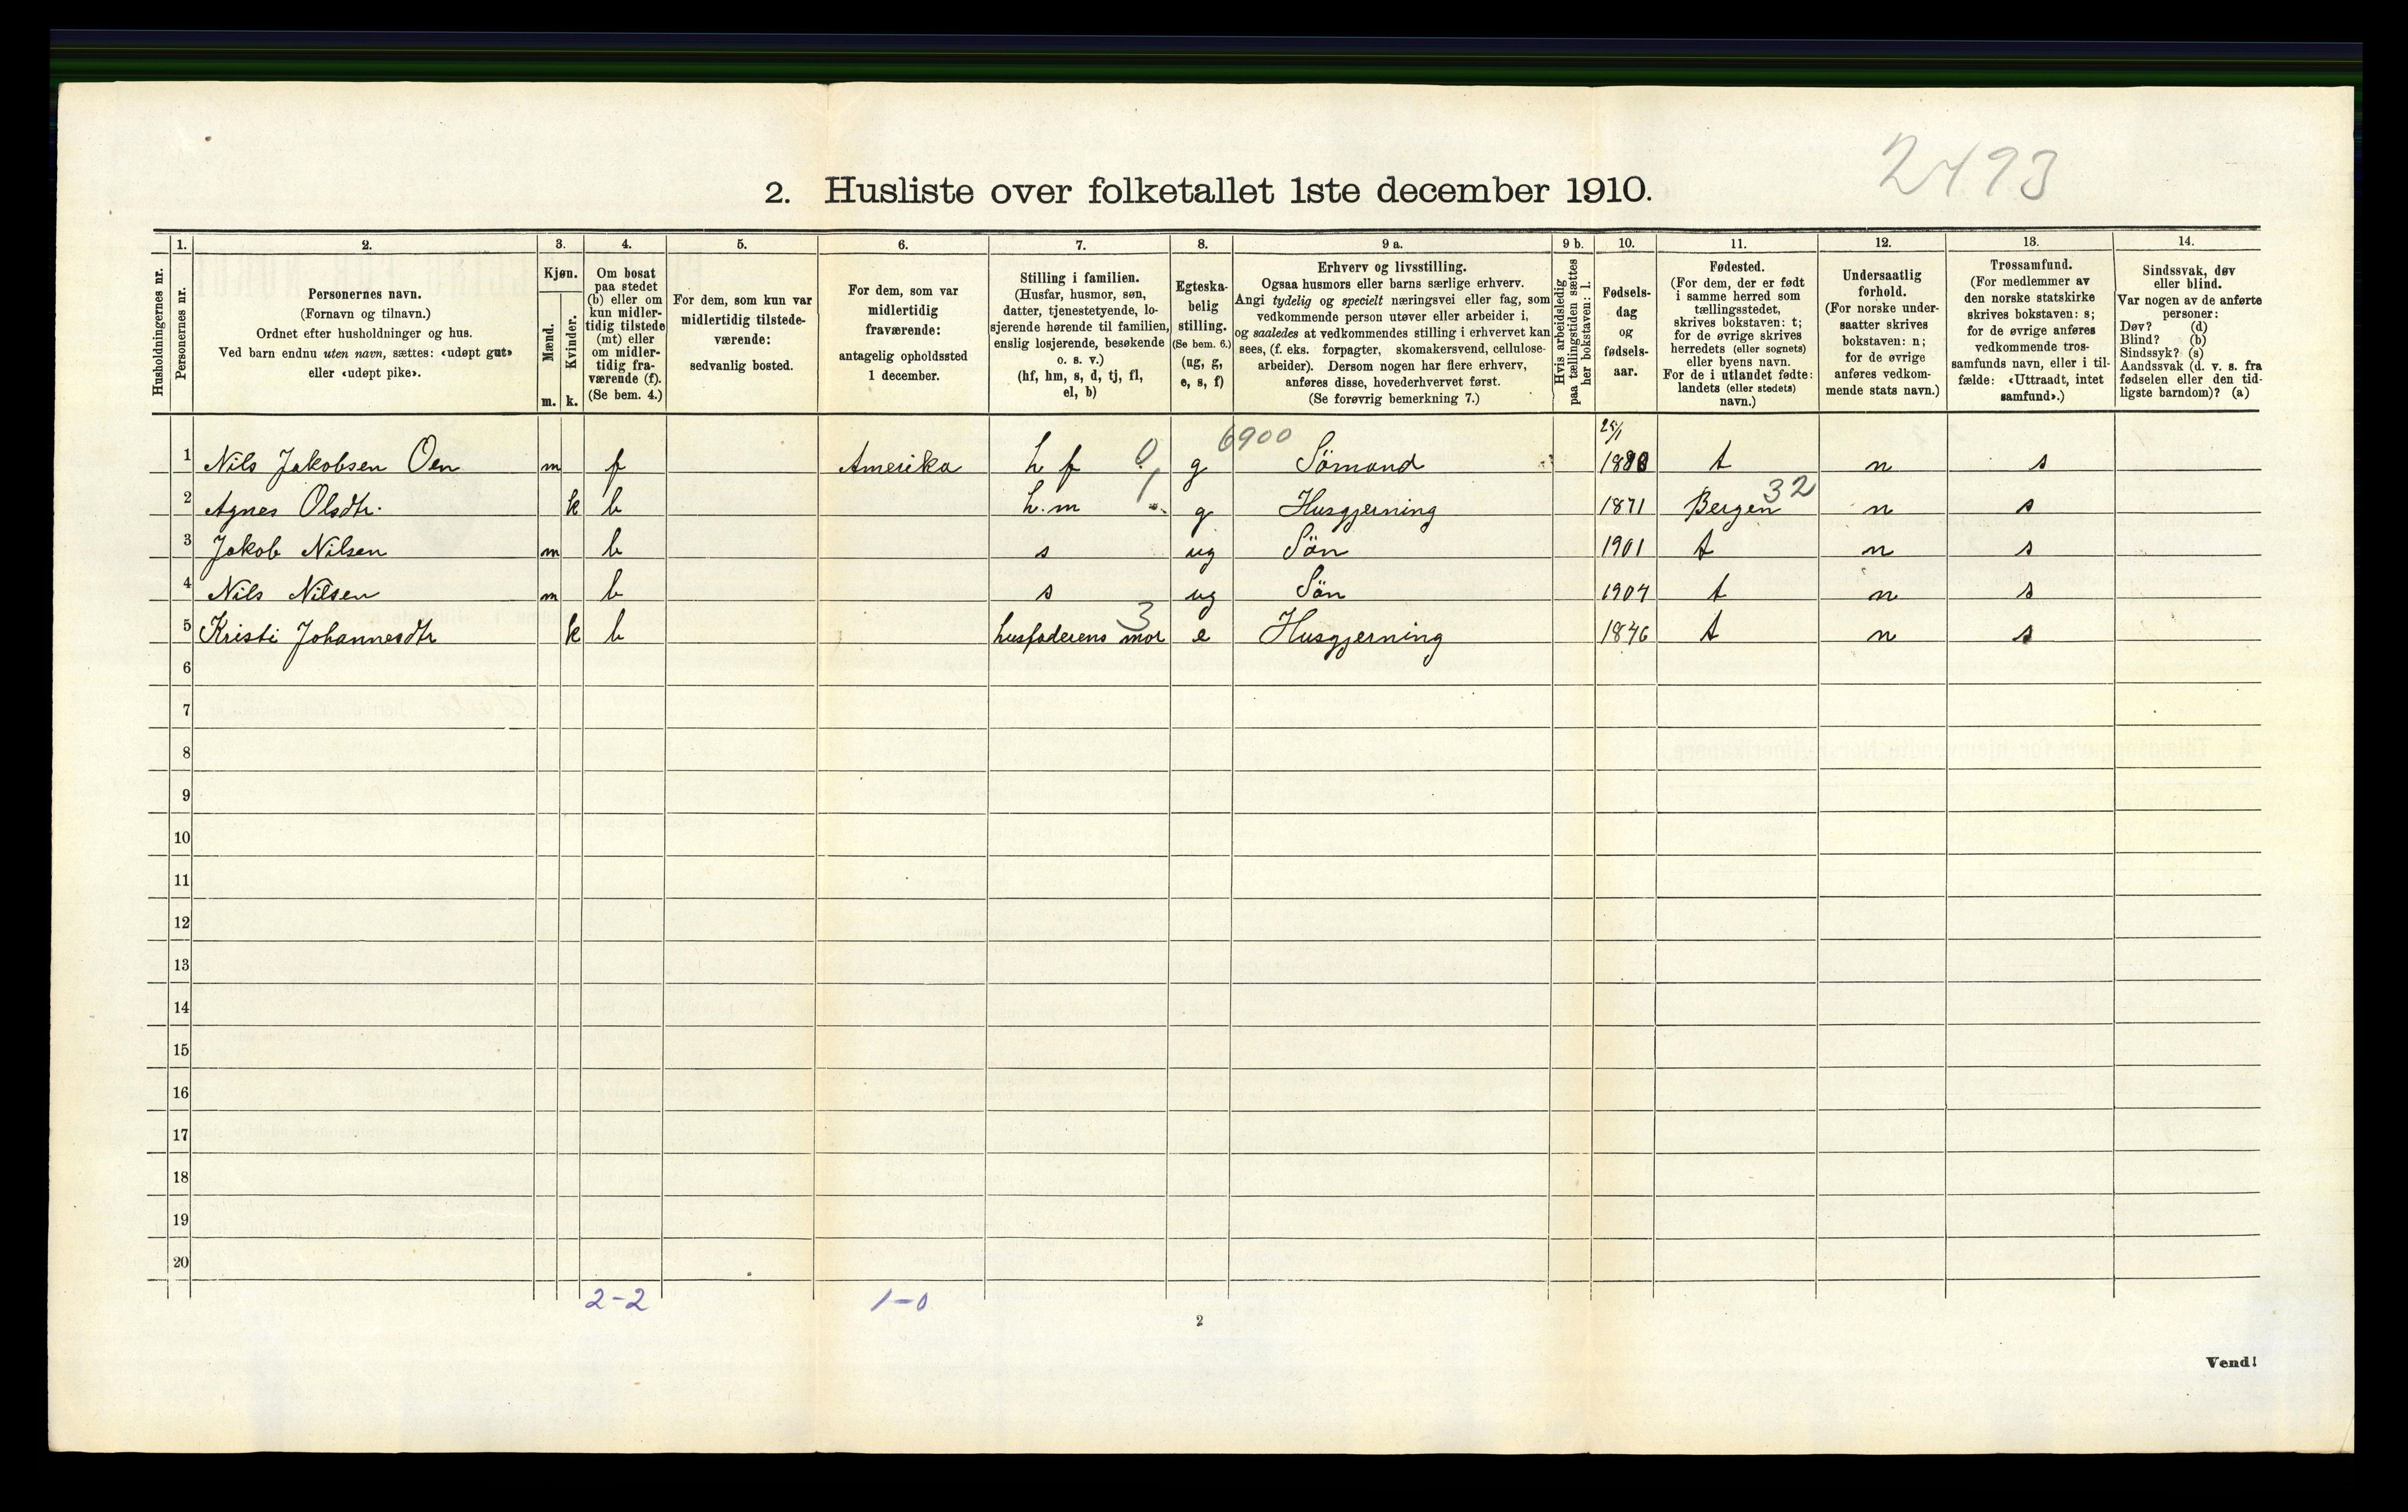 2493
2. Husliste over folketallet 1ste december 1910.
Husholdningernes nr.
1. Personernes nr.
2. Personernes navn.
(Fornavn og tilnavn.)
Ordnet efter husholdninger og hus.
Ved barn endnu uten navn, sættes: «udøpt gut»
eller «udøpt pike».
3. Kjøn.
Mænd. m.
Kvinder. k.
4. Om bosat
paa stedet
(b) eller om
kun midler-
tidig tilstede
(mt) eller
om midler-
tidig fra-
værende (f).
(Se bem. 4.)
5. For dem, som kun var
midlertidig tilstede-
værende:
sedvanlig bosted.
6. For dem, som var
midlertidig
fraværende:
antagelig opholdssted
1 december.
7. Stilling i familien.
(Husfar, husmor, søn,
datter, tjenestetyende, lo-
sjerende hørende til familien,
enslig losjerende, besøkende
o. s. v.)
(hf, hm, s, d, tj, fl,
el, b)
8. Egteska-
belig
stilling.
(Se bem. 6.)
(ug, g,
e, s, f)
9 a. Erhverv og livsstilling.
Ogsaa husmors eller barns særlige erhverv.
Angi tydelig og specielt næringsvei eller fag, som
vedkommende person utøver eller arbeider i,
og saaledes at vedkommendes stilling i erhvervet kan
sees, (f. eks. forpagter, skomakersvend, cellulose-
arbeider). Dersom nogen har flere erhverv,
anføres disse, hovederhvervet først.
(Se forøvrig bemerkning 7.)
9 b. Hvis arbeidsledig
paa tællingstiden sættes
her bokstaven: l.
10. Fødsels-
dag
og
fødsels-
aar.
11. Fødested.
(For dem, der er født
i samme herred som
tællingsstedet,
skrives bokstaven: t;
for de øvrige skrives
herredets (eller sognets)
eller byens navn.
For de i utlandet fødte:
landets (eller stedets)
navn.)
12. Undersaatlig
forhold.
(For norske under-
saatter skrives
bokstaven: n;
for de øvrige
anføres vedkom-
mende stats navn.)
13. Trossamfund.
(For medlemmer av
den norske statskirke
skrives bokstaven: s;
for de øvrige anføres
vedkommende tros-
samfunds navn, eller i til-
fælde: «Uttraadt, intet
samfund».)
14. Sindssvak, døv
eller blind.
Var nogen av de anførte
personer:
Døv? (d)
Blind? (b)
Sindssyk? (s)
Aandssvak (d. v. s. fra
fødselen eller den tid-
ligste barndom)? (a)
6900 25/1
1 Nils Jakobsen Oen m f Amerika h f 0 g Sömand 1880 t n s
2 Agnes Olsdtr. k b h.m 1 g Husgjerning 1871 Bergen 32 n s
3 Jakob Nilsen m b s ug Sön 1901 t n s
4 Nils Nilsen m b s ug Sön 1904 t n s
5 Kristi Johannesdtr k b husfaderens mor 3 e Husgjerning 1846 t n s
6
7
8
9
10
11
12
13
14
15
16
17
18
19
20
2-2 1-0
2
Vend!